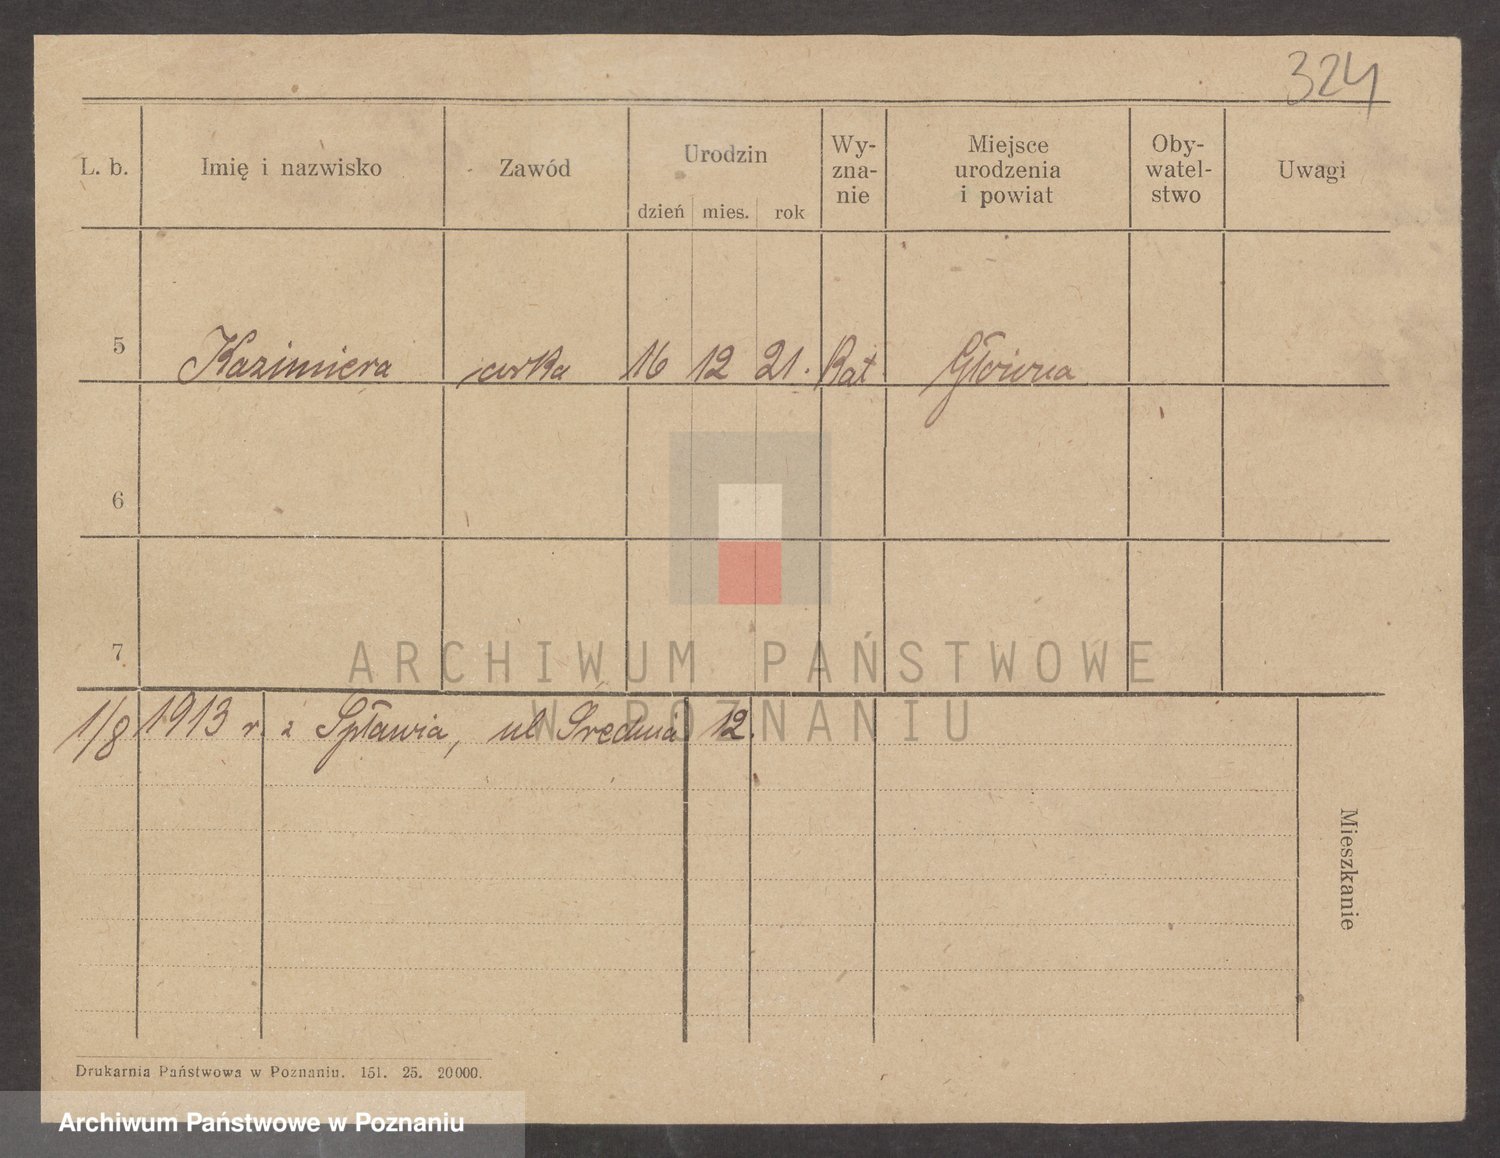 324
L. b. Imię i nazwisko Zawód Urodzin dzień mies. rok Wy-zna-nie Miejsce urodzenia i powiat Oby-watel-stwo Uwagi
5 Kazimiera córka 16 12 21. Kat Główna
6
7
1/8 1913 r. z Spławia, ul Średnia 12.
Mieszkanie
Drukarnia Państwowa w Poznaniu. 151. 25. 20000.
ARCHIWUM PAŃSTWOWE
W POZNANIU
Archiwum Państwowe w Poznaniu